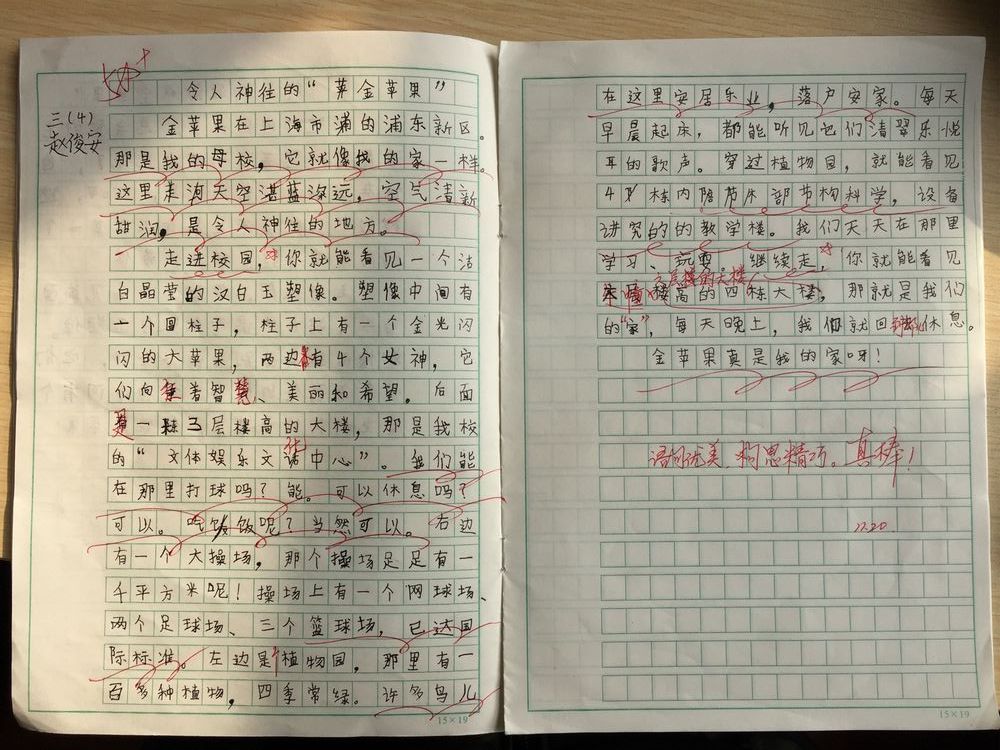 好+
令人神往的“苹金苹果”
三(4)
赵俊安
金苹果在上海市浦的浦东新区。
那是我的母校，它就像我的家一样。
这里美沟天空湛蓝深远，空气清新
甜润，是令人神往的地方。
走进校园，你就能看见一个洁
白晶莹的汉白玉塑像。塑像中间有
一个圆柱子，柱子上有一个金光闪
闪的大苹果，两边有4个女神，它
们向着智慧、美丽和希望。后面
是一栋3层楼高的大楼，那是我校
的“文体娱乐文化中心”。我们能
在那里打球吗？能。可以休息吗？
可以。吃饭饭呢？当然可以。右边
有一个大操场，那个操场足足有一
千平方米呢！操场上有一个网球场、
两个足球场、三个篮球场，已达国
际标准。左边是植物园，那里有一
百多种植物，四季常绿。许多鸟儿
15×19
在这里安居乐业，落户安家。每天
早晨起床，都能听见它们清翠乐悦
耳的歌声。穿过植物园，就能看见
4栋内陪节床部节构科学，设备
讲究的的教学楼。我们天天在那里
学习、玩耍。继续走，你就能看见
楼高的四栋大楼，那就是我们
的“家”，每天晚上，我们就回那儿休息。
金苹果真是我的家呀！
语句优美，构思精巧。真棒！
12.20
15×19